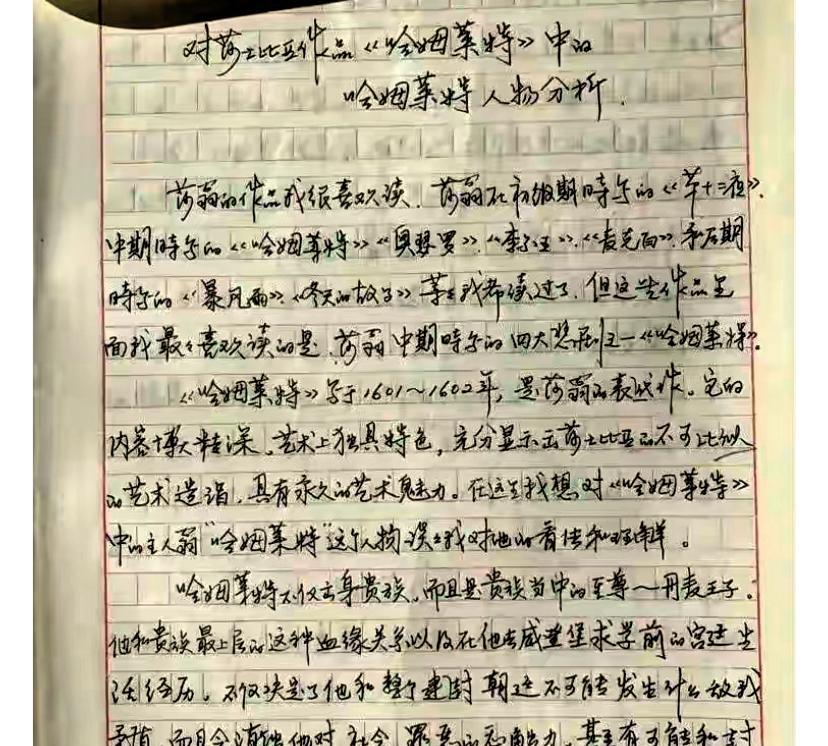 对莎士比亚作品《哈姆莱特》中的
哈姆莱特人物分析.
莎翁的作品我很喜欢读.莎翁在初级期时写的《第十二夜》.
中期时写的《哈姆莱特》《奥瑟罗》.《李尔王》.《麦克白》.和后期
时写的《暴风雨》.《冬天的故事》等等我都读过了.但这些作品里
面我最喜欢读的是.莎翁中期时写的四大悲剧之一《哈姆莱特》.
《哈姆莱特》写于1601～1602年,是莎翁的表代作.它的
内容博大精深.艺术上独具特色,充分显示出莎士比亚的不可比拟
的艺术造诣.具有永久的艺术魅力。在这里我想对《哈姆莱特》
中的主人翁"哈姆莱特"这个人物谈谈我对他的看法和理解。
哈姆莱特不仅出身贵族.而且是贵族当中的至尊～丹麦王子.
他和贵族最上层的这种血缘关系以及在他去威登堡求学前的宫廷生
活经历.不仅决定了他和整个封建朝廷不可能发生什么敌我
矛盾.而且会消蚀他对社会 罪恶的 能力.甚至有可能和封